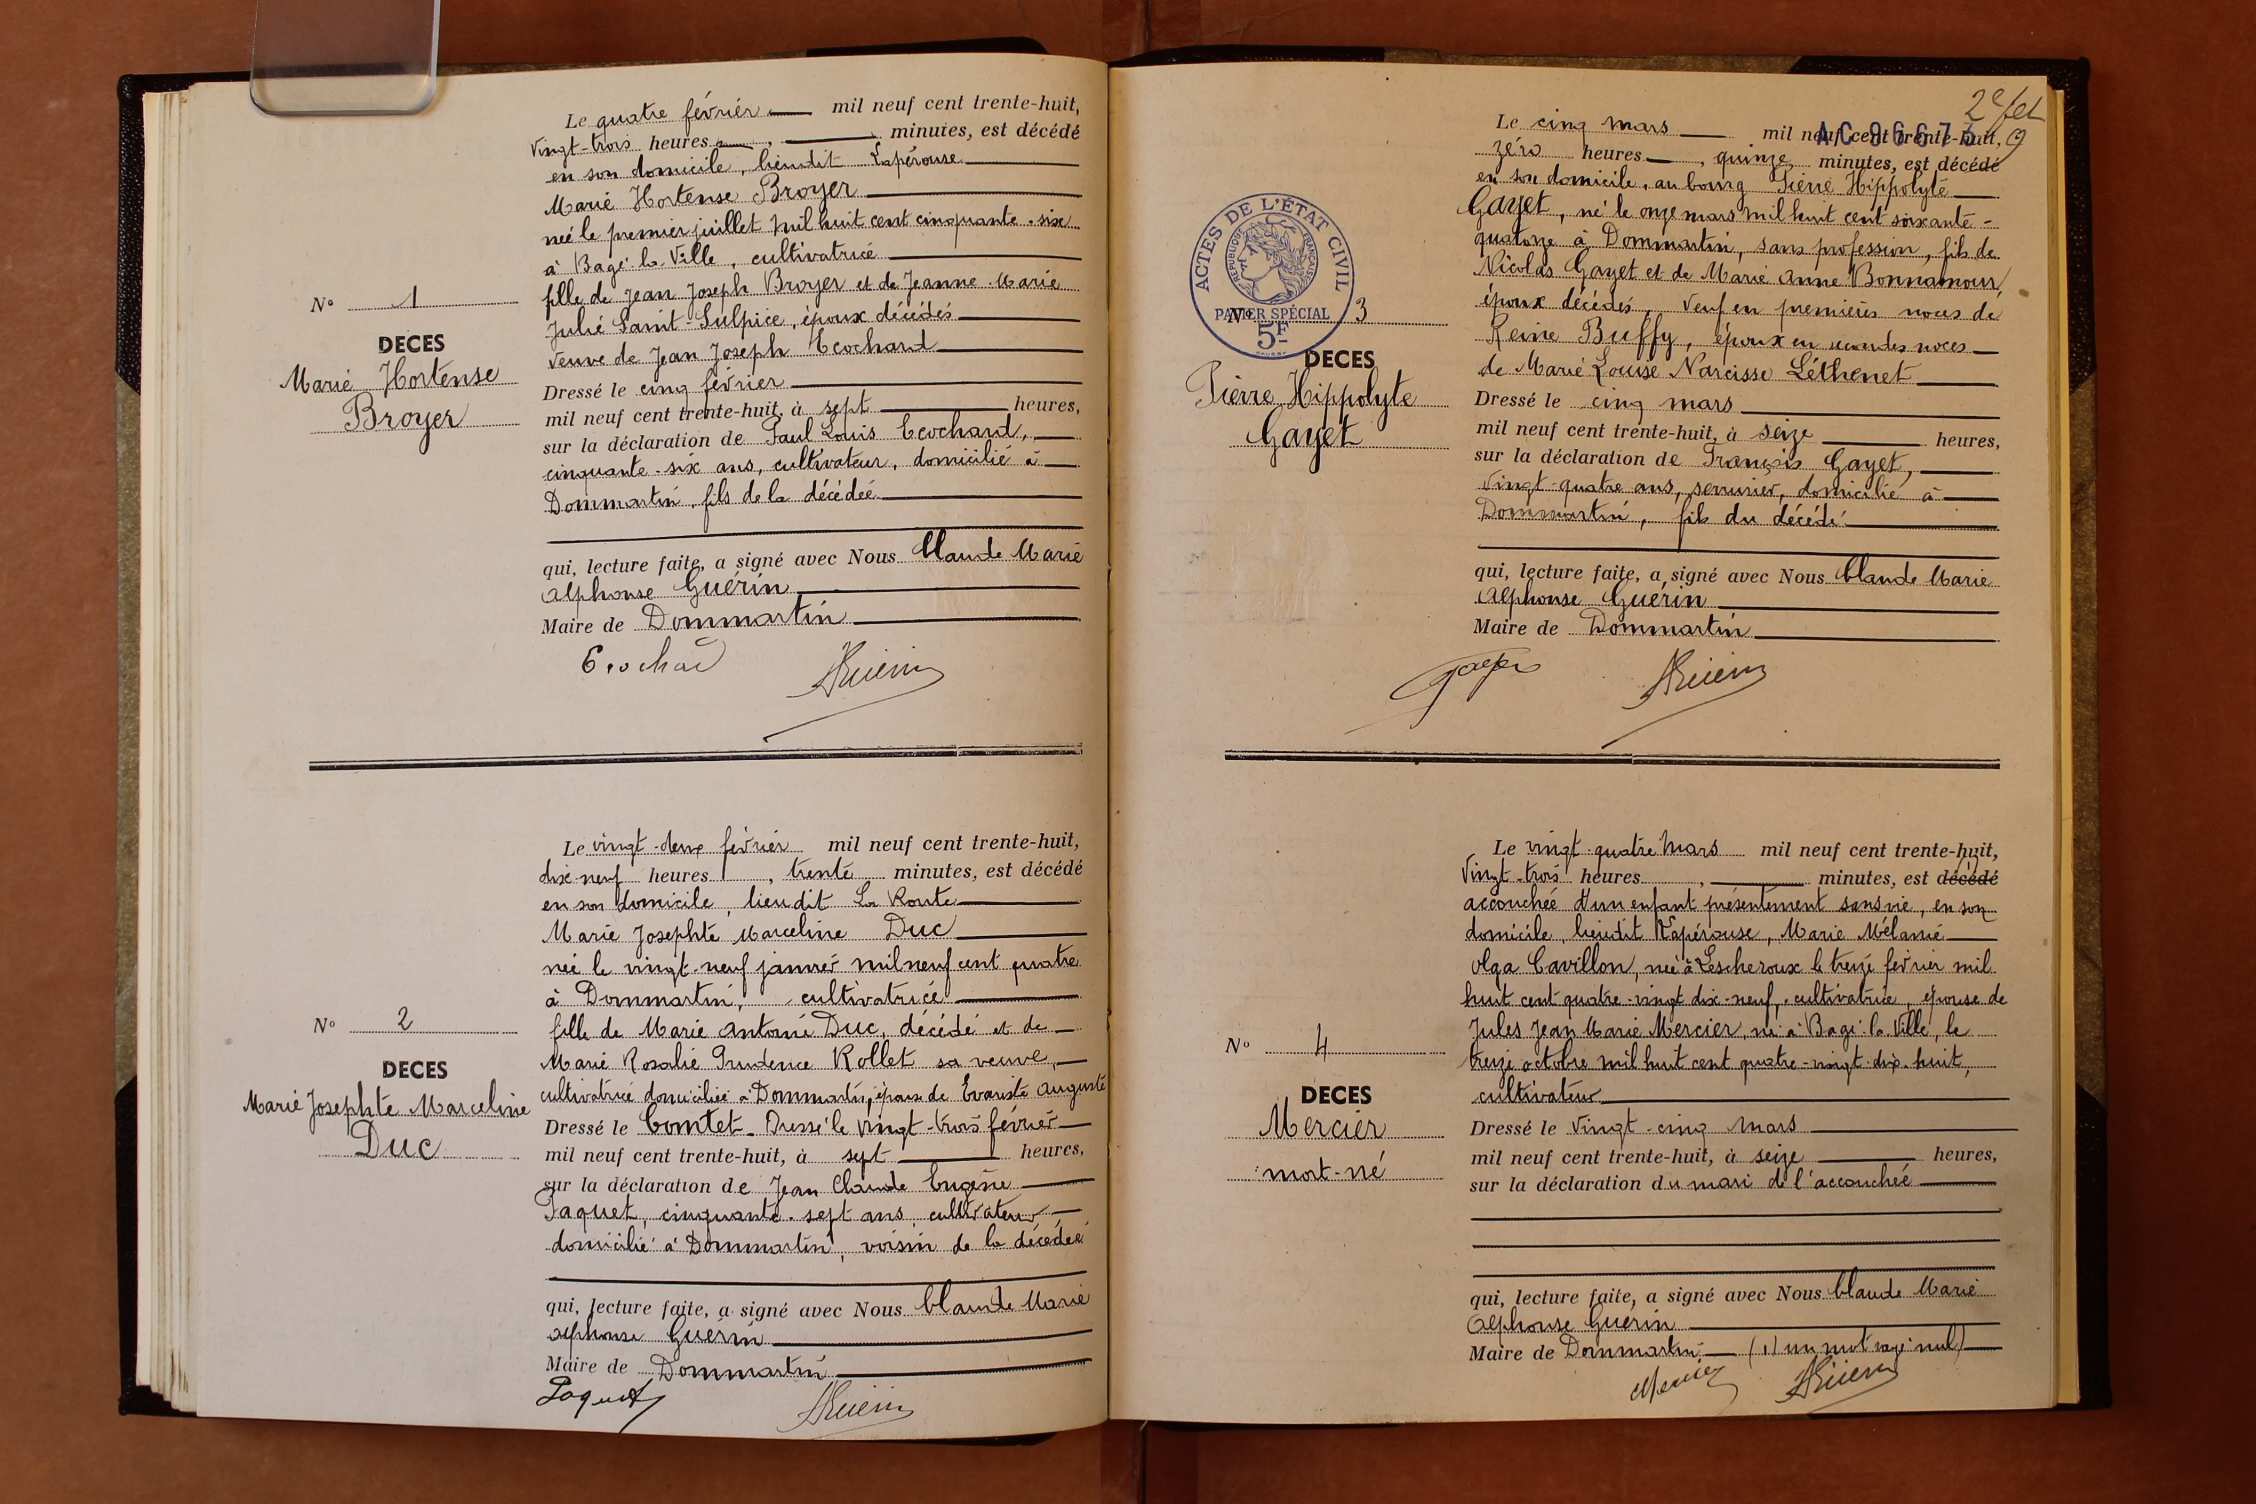 Le quatre février mil neuf cent trente-huit,
Vingt-trois heures, minutes, est décédé
en son domicile, lieudit Lapérouse
Marie Hortense Broyer
née le premier juillet mil huit cent cinquante-six
à Bagé-la-Ville, cultivatrice
fille de Jean Joseph Broyer et de Jeanne-Marie
Julie Saint-Sulpice, époux décédés
Veuve de Jean Joseph Ecochard
Dressé le cinq février
mil neuf cent trente-huit, à sept heures,
sur la déclaration de Paul Louis Ecochard,
cinquante-six ans, cultivateur, domicilié à
Dommartin, fils de la décédée
qui, lecture faite, a signé avec Nous Claude Marie
Alphonse Guérin
Maire de Dommartin
Ecochard Guérin
N° 1
DECES
Marie Hortense
Broyer
Le vingt-deux février mil neuf cent trente-huit,
dix-neuf heures, trente minutes, est décédé
en son domicile, lieudit La Route
Marie Josephte Marceline Duc
née le vingt-neuf janvier mil neuf cent quatre
à Dommartin, cultivatrice
fille de Marie Antoine Duc, décédé et de
Marie Rosalie Prudence Rollet sa veuve,
cultivatrice domiciliée à Dommartin, épouse de Evariste Auguste
Dressé le Comtet. Dressé le vingt-trois février
mil neuf cent trente-huit, à sept heures,
sur la déclaration de Jean Claude Eugène
Paquet, cinquante-sept ans, cultivateur
domicilié à Dommartin, voisin de la décédée
qui, lecture faite, a signé avec Nous Claude Marie
Alphonse Guérin
Maire de Dommartin
Paquet Guérin
N° 2
DECES
Marie Josephte Marceline
Duc
2e fet
AC 86673
9
Le cinq mars mil neuf cent trente-huit,
zéro heures, quinze minutes, est décédé
en son domicile, au bourg Pierre Hippolyte
Gayet, né le onze mars mil huit cent soixante-
quatorze à Dommartin, sans profession, fils de
Nicolas Gayet et de Marie Anne Bonnamour,
époux décédés, Veuf en premières noces de
Reine Buffy, époux en secondes noces
de Marie Louise Narcisse Léthenet
Dressé le cinq mars
mil neuf cent trente-huit, à seize heures,
sur la déclaration de François Gayet,
Vingt-quatre ans, serrurier, domicilié à
Dommartin, fils du décédé
qui, lecture faite, a signé avec Nous Claude Marie
Alphonse Guérin
Maire de Dommartin
Gayet Guérin
ACTES DE L'ÉTAT CIVIL
RÉPUBLIQUE FRANÇAISE
PAPIER SPÉCIAL
5F
N° 3
DECES
Pierre Hippolyte
Gayet
Le vingt-quatre mars mil neuf cent trente-huit,
Vingt-trois heures, minutes, est décédé
accouchée d'un enfant présentement sans vie, en son
domicile, lieudit Lapérouse, Marie Mélanie
Olga Cavillon, née à Lescheroux le treize février mil
huit cent quatre-vingt dix-neuf, cultivatrice, épouse de
Jules Jean Marie Mercier, né à Bagé-la-Ville, le
treize octobre mil huit cent quatre-vingt-dix-huit,
cultivateur
Dressé le Vingt-cinq mars
mil neuf cent trente-huit, à seize heures,
sur la déclaration du mari de l'accouchée
qui, lecture faite, a signé avec Nous Claude Marie
Alphonse Guérin
Maire de Dommartin (1) un mot rayé nul
Mercier Guérin
N° 4
DECES
Mercier
mort-né